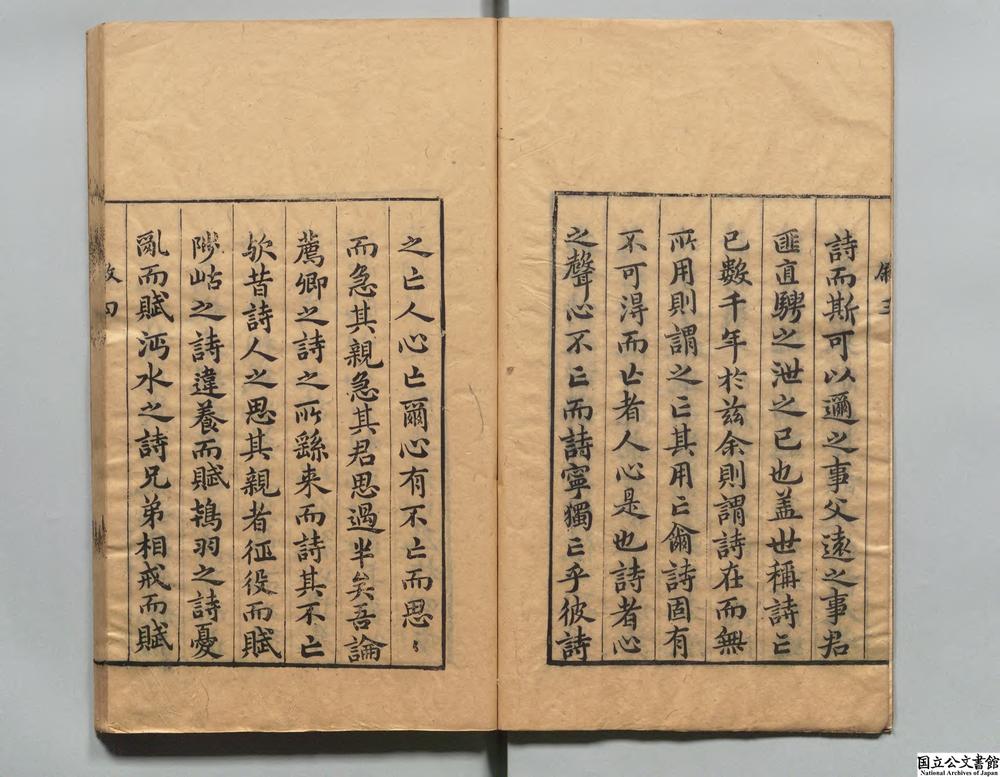 詩而斯可以邇之事父遠之事君
匪直騁之泄之已也盖世稱詩亡
已數千年於兹余則謂詩在而無
所用則謂之亡其用亡爾詩固有
不可得而亡者人心是也詩者心
之聲心不亡而詩寧獨亡乎彼詩
之亡人心亡爾心有不亡而思〻
而急其親急其君思過半矣吾論
薦卿之詩之所繇来而詩其不亡
欤昔詩人之思其親者征役而賦
陟岵之詩違養而賦鴇羽之詩憂
亂而賦沔水之詩兄弟相戒而賦
国立公文書館
National Archives of Japan